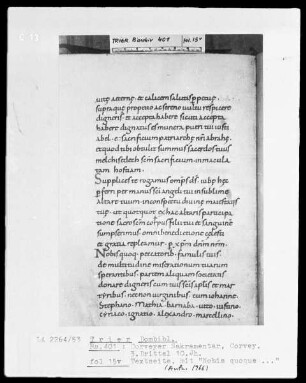 TRIER BOMBIBL 401
fol. 15v
uitę aeternę. et calicem salutis perpetuę.
Supra quę propitio ac sereno uultu respicere
digneris. et accepta habere sicuti accepta
habere dignatus es munera pueri tui iusti
abel. et sacrificium patriarchę nri abrahę.
et quod tibi obtulit summus sacerdos tuus
melchisedech scm sacrificium inmacula
tam hostiam.
Supplices te rogamus omps ds. iube hęc
perferri per manus sci angeli tui in sublime
altare tuum in conspectu diuinę maiestatis
tuę. ut quotquot ex hac altaris participa
tione sacrosanctum corpus et sanguinem
sumpserimus. omni benedictione cęlesti
et gratia repleamur. p xpm dnm nrm.
Nobis quoq. peccatorib. famulis tuis
de multitudine miserationum tuarum
sperantibus. partem aliquam et societatem
donare digneris cum tuis scis aplis et mar
tyribus. cum iohanne.
Stephano. Mathia. barnaba.
ignatio. alexandro. marcellino.
LA 2264/53
Trier Dombibl.
Hs.401: Corveyer Sacramentar, Corvey.
3.Drittel 10.Jh.
fol 15v Textseite, mit "Nobis quoque ..."